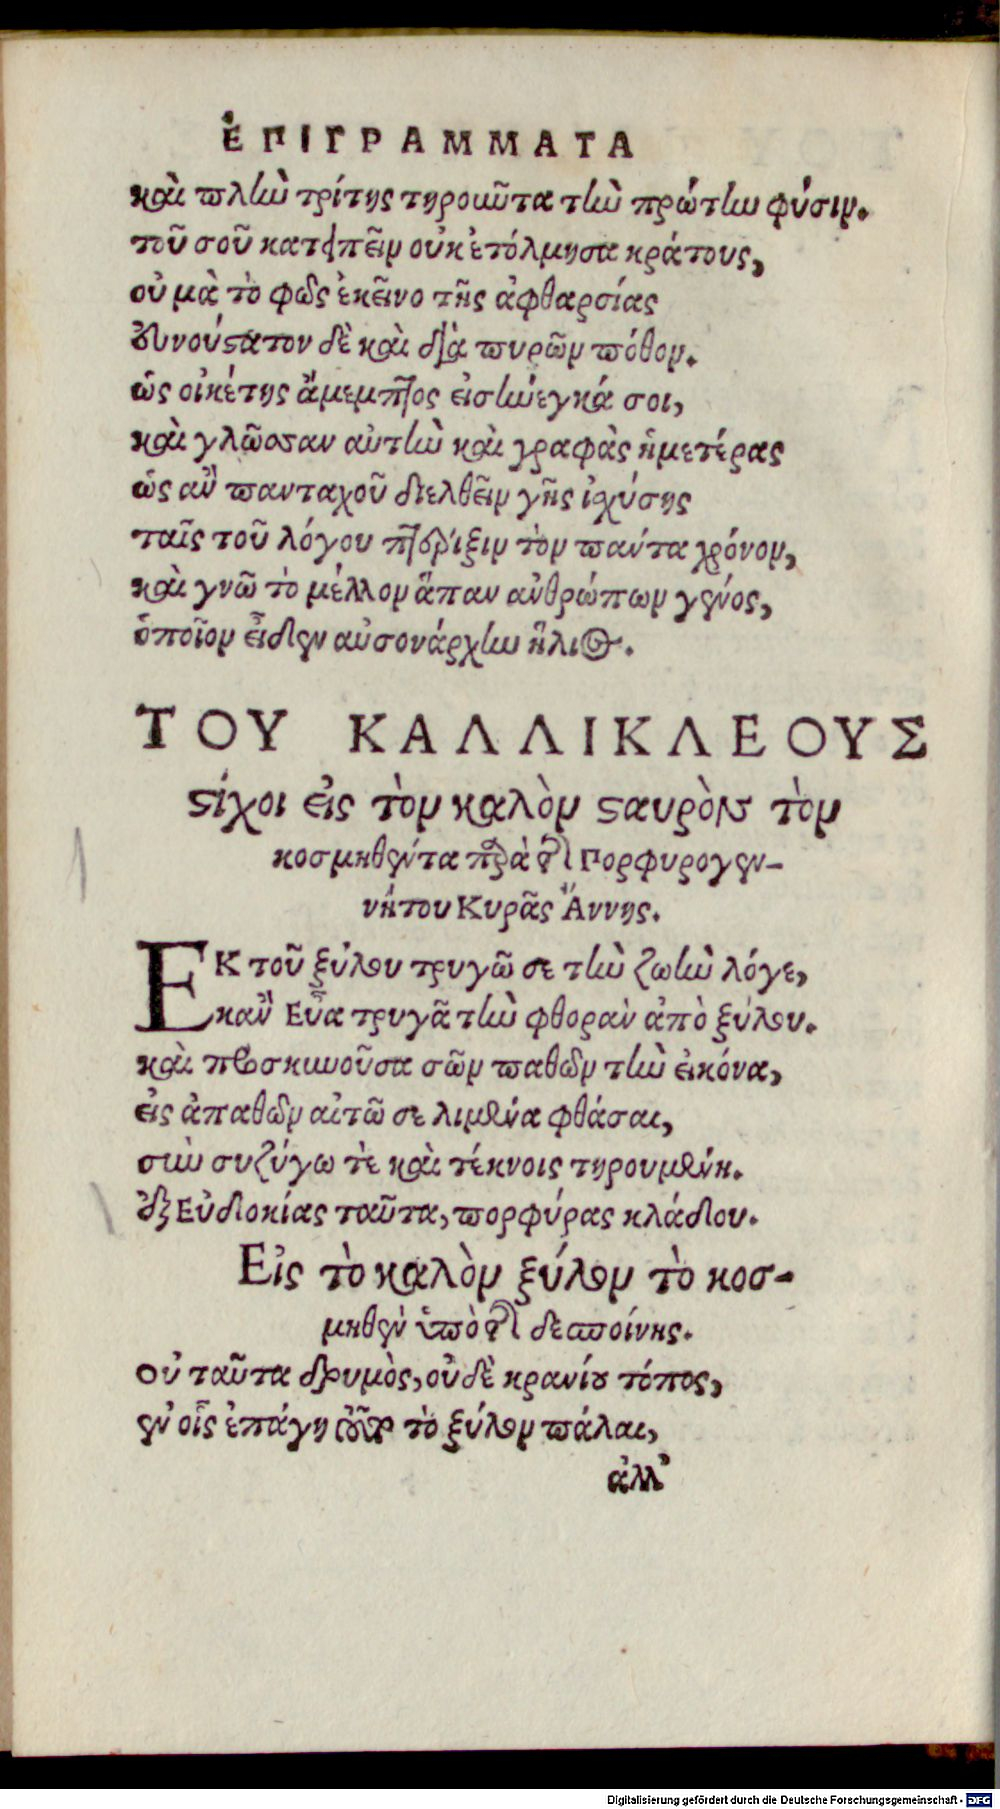 ἘΠΙΓΡΑΜΜΑΤΑ
καὶ πλὴν τρίτης τηροῦντα τὴν πρώτην φύσιν.
τοῦ σοῦ κατειπεῖν οὐκ ἐτόλμησα κράτους,
οὐ μὰ τὸ φῶς ἐκεῖνο τῆς ἀφθαρσίας
εὐνούστατον δὲ καὶ διὰ πυρῶν πόθον.
ὡς οἰκέτης ἄμεμπτος εἰσήνεγκά σοι,
καὶ γλῶσσαν αὐτὴν καὶ γραφὰς ἡμετέρας
ὡς ἂν πανταχοῦ διελθεῖν γῆς ἰσχύσῃς
ταῖς τοῦ λόγου πτέρυξιν τὸν πάντα χρόνον,
καὶ γνῶ τὸ μέλλον ἅπαν ἀνθρώπων γένος,
ὁποῖον εἶδεν αὐσονάρχην ἥλιος.
ΤΟΥ ΚΑΛΛΙΚΛΕΟΥΣ
στίχοι εἰς τὸν καλὸν σταυρὸν τὸν
κοσμηθέντα παρὰ τῆς Πορφυρογεν-
νήτου Κυρᾶς Ἄννης.
ΕΚ τοῦ ξύλου τρυγῶ σε τὴν ζωὴν λόγε,
κἂν Εὖα τρυγᾶ τὴν φθορὰν ἀπὸ ξύλου.
καὶ προσκυνοῦσα σῶν παθῶν τὴν εἰκόνα,
εἰς ἀπαθῶν αἰτῶ σε λιμένα φθάσαι,
σὺν συζύγω τὲ καὶ τέκνοις τηρουμένη.
ἐξ Εὐδοκίας ταῦτα, πορφύρας κλάδου.
Εἰς τὸ καλὸν ξύλον τὸ κοσ-
μηθὲν ὑπὸ τῆς δεσποίνης.
οὐ ταῦτα δρυμὸς, οὐδὲ κρανίου τόπος,
ἐν οἷς ἐπάγη σῶτερ τὸ ξύλον πάλαι,
ἀλλ᾽
Digitalisierung gefördert durch die Deutsche Forschungsgemeinschaft - DFG